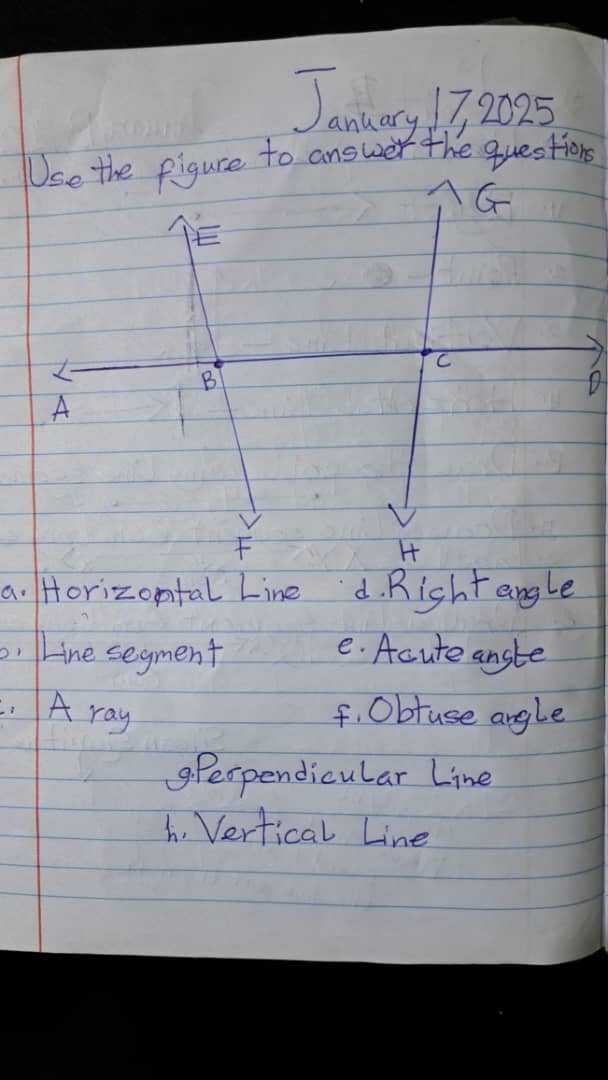 January 17, 2025
Use the figure to answer the questions
G
E
A
B
C
D
F
H
a. Horizontal Line
d. Right angle
b. Line segment
e. Acute angle
c. A ray
f. Obtuse angle
g. Perpendicular Line
h. Vertical Line